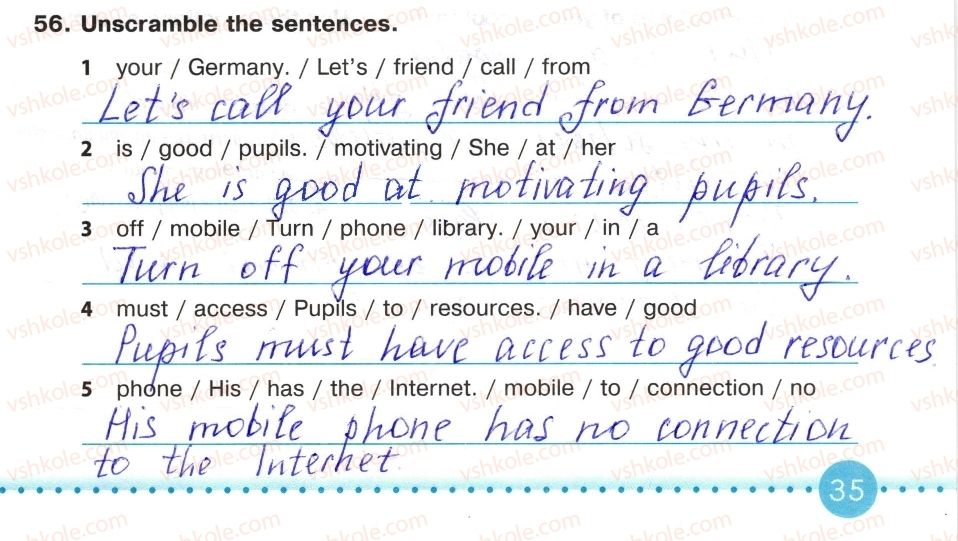 56. Unscramble the sentences.
1 your / Germany. / Let's / friend / call / from
Let's call your friend from Germany.
2 is / good / pupils. / motivating / She / at / her
She is good at motivating pupils.
3 off / mobile / Turn / phone / library. / your / in / a
Turn off your mobile in a library.
4 must / access / Pupils / to / resources. / have / good
Pupils must have access to good resources
5 phone / His / has / the / Internet. / mobile / to / connection / no
His mobile phone has no connection
to the Internet
35